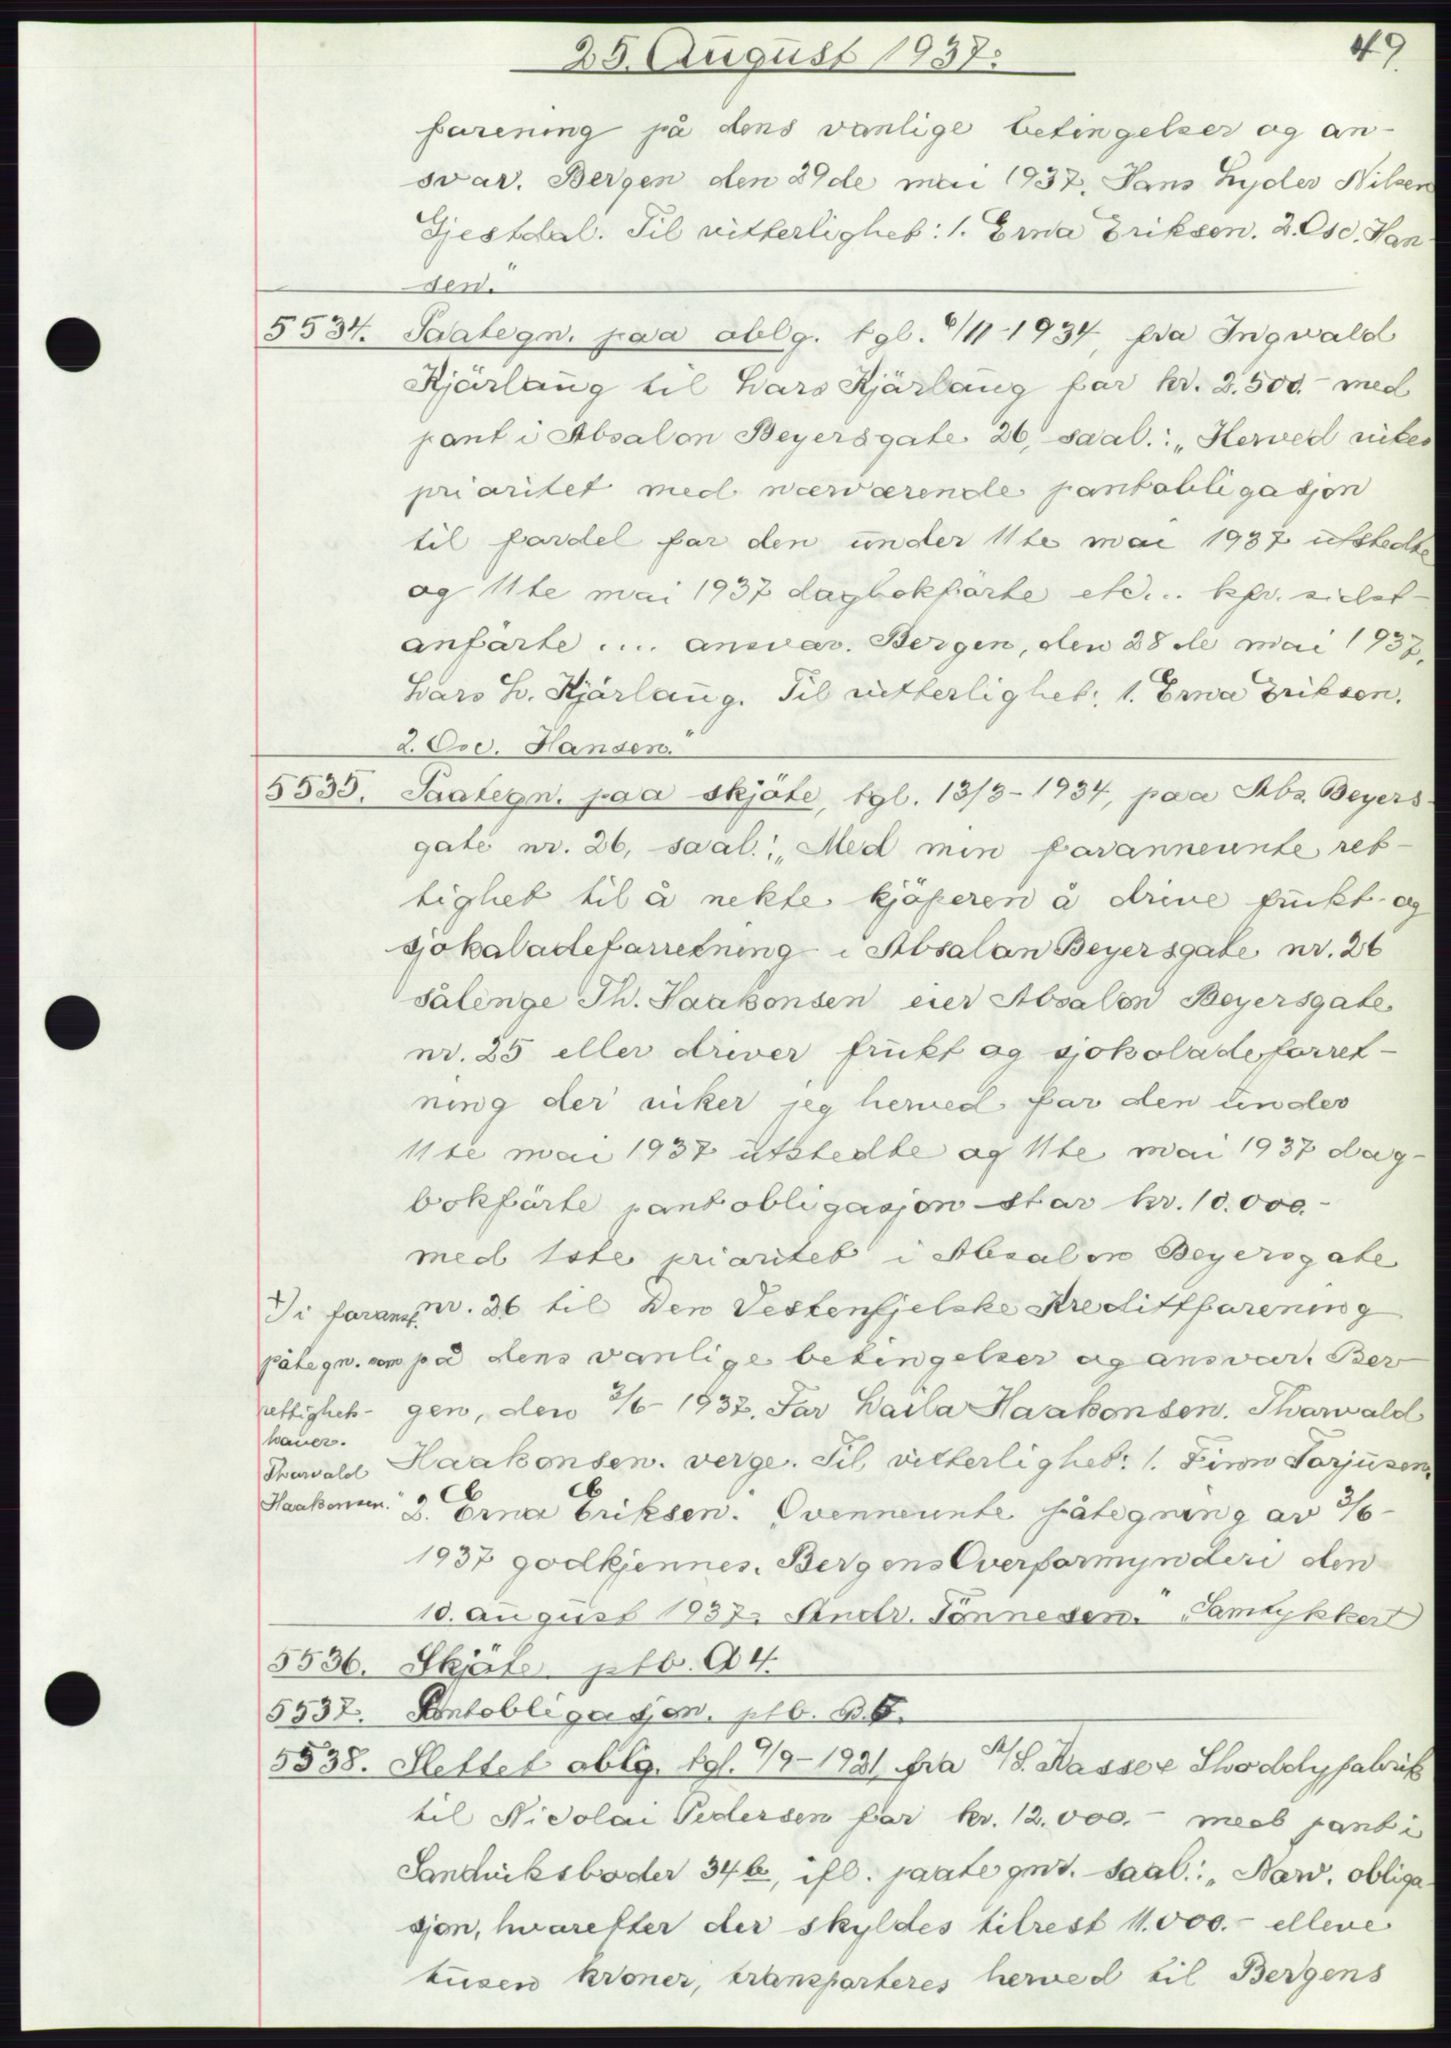 25. August 1937.
49.
forening på dens vanlige betingelser og an-
svar. Bergen den 29de mai 1937. Hans Lyder Nilsen
Gjestdal. Til vitterlighet: 1. Erna Eriksen. 2. Osc. Han-
sen."
5534. Paategn. paa oblg. tgl. 6/11-1934, fra Ingvald
Kjärlaug til Lars Kjärlaug for kr. 2.500.- med
pant i Absalon Beyersgate 26, saal.: „Herved vikes
prioritet med nærværende pantobligasjon
til fordel for den under 11te mai 1937 utstedte
og 11te mai 1937 dagbokförte etc... kfr. sidst-
anförte .... ansvar. Bergen, den 28de mai 1937.
Lars L. Kjärlaug. Til vitterlighet: 1. Erna Eriksen.
2. Osc. Hansen."
5535. Paategn. paa skjöte, tgl. 13/3-1934, paa Abs. Beyers-
gate nr. 26, saal.: „Med min foranneunte ret-
tighet til å nekte kjöperen å drive frukt- og
sjokoladeforretning i Absalon Beyersgate nr. 26
sålenge Th. Haakonsen eier Absalon Beyersgate
nr. 25 eller driver frukt og sjokoladeforret-
ning der viker jeg herved for den under
11te mai 1937 utstedte og 11te mai 1937 dag-
bokförte pantobligasjon stor kr. 10.000.-
med 1ste prioritet i Absalon Beyersgate
nr. 26 til Den Vestenfjelske Kredittforening
på dens vanlige betingelser og ansvar. Ber-
gen, den 3/6-1937. For Laila Haakonsen. Thorvald
Haakonsen. verge. Til vitterlighet: 1. Finn Torjusen.
2. Erna Eriksen." „Ovenneunte påtegning av 3/6-
1937 godkjennes. Bergens Overformynderi den
10. august 1937. Andr. Tönnesen." „Samtykkert
+) i foranst.
påtegn. som
rettighets-
haver.
Thorvald
Haakonsen."
5536. Skjöte ptb. A 4.
5537. Pantobligasjon. ptb. B. 5.
5538. Slettet oblg. tgl. 9/9-1921 fra A/S. Rasse & Shoddyfabrik
til Nicolai Pedersen for kr. 12.000.- med pant i
Sandviksboder 34 b, ifl. paategn. saal.: „Nærv. obliga-
sjon, hvorefter der skyldes tilrest 11.000.- elleve
tusen kroner, transporteres herved til Bergens